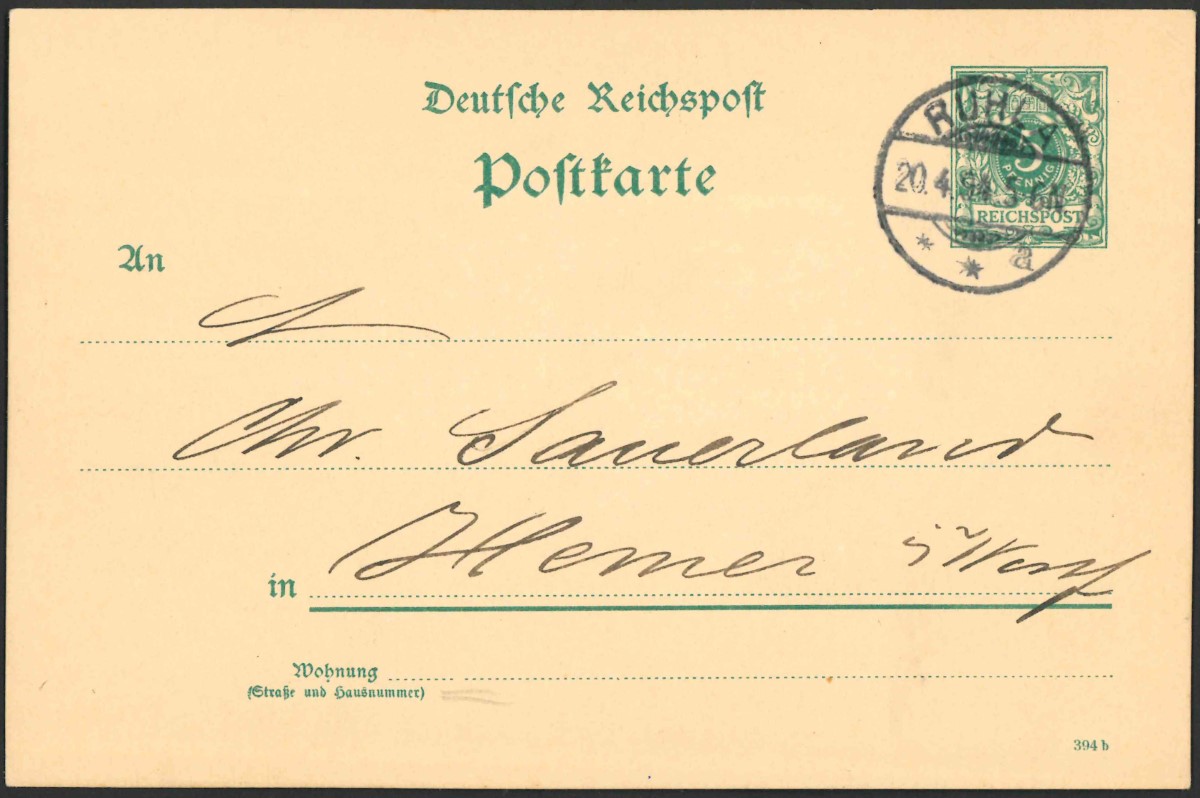 Deutsche Reichspost
Postkarte
5
PFENNIG
REICHSPOST
RUHLA
20.4.94 5-6N
* * a
An
Chr. Sauerland
in Hemer i/Westf
Wohnung
(Straße und Hausnummer)
394 b